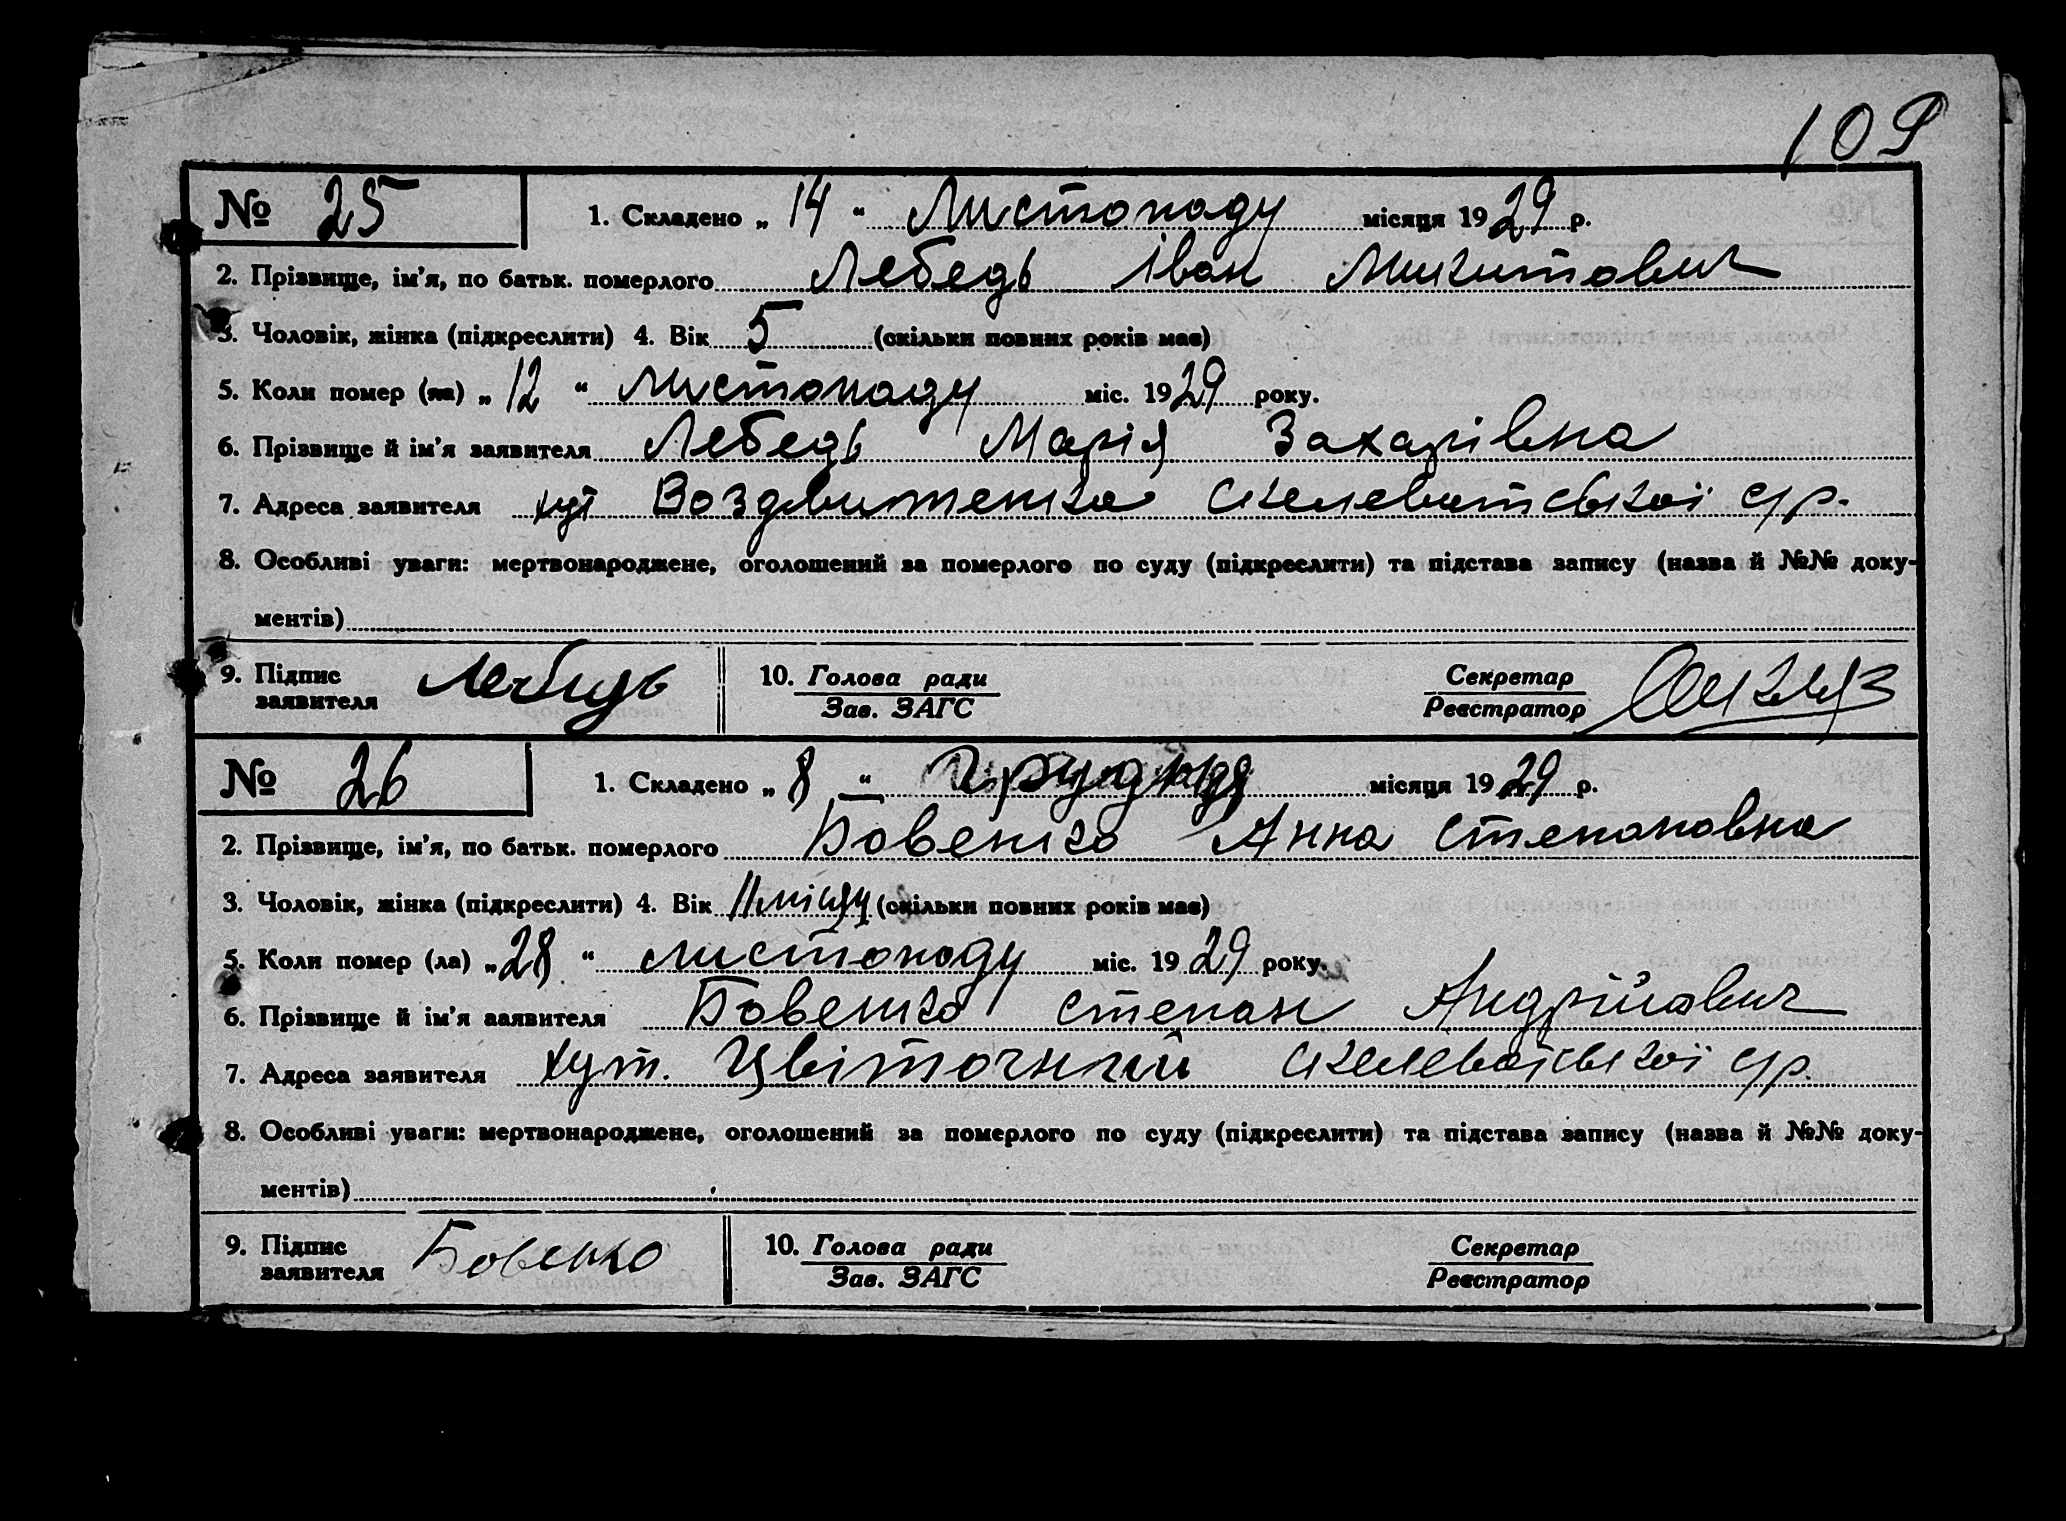 109
№ 25 1. Складено „ 14 “ Листопаду місяця 1929 р.
2. Прізвище, ім'я, по батьк. померлого Лебедь Іван Микитович
3. Чоловік, жінка (підкреслити) 4. Вік 5 (скільки повних років має)
5. Коли помер (ла) „ 12 “ листопаду міс. 1929 року.
6. Прізвище й ім'я заявителя Лебедь Марія Захарівна
7. Адреса заявителя хут Воздвиженка Скелеватської с/р.
8. Особливі уваги: мертвонароджене, оголошений за померлого по суду (підкреслити) та підстава запису (назва й №№ доку-
ментів)
9. Підпис заявителя Лебидь 10. Голова ради Секретар
Зав. ЗАГС Реєстратор
№ 26 1. Складено „ 8 “ Грудня місяця 1929 р.
2. Прізвище, ім'я, по батьк. померлого Бовенко Анна Степановна
3. Чоловік, жінка (підкреслити) 4. Вік 11 місяц (скільки повних років має)
5. Коли помер (ла) „ 28 “ листопаду міс. 1929 року.
6. Прізвище й ім'я заявителя Бовенко Степан Андрійович
7. Адреса заявителя хут. Цвіточний Скелеватської с/р.
8. Особливі уваги: мертвонароджене, оголошений за померлого по суду (підкреслити) та підстава запису (назва й №№ доку-
ментів)
9. Підпис заявителя Бовенко 10. Голова ради Секретар
Зав. ЗАГС Реєстратор